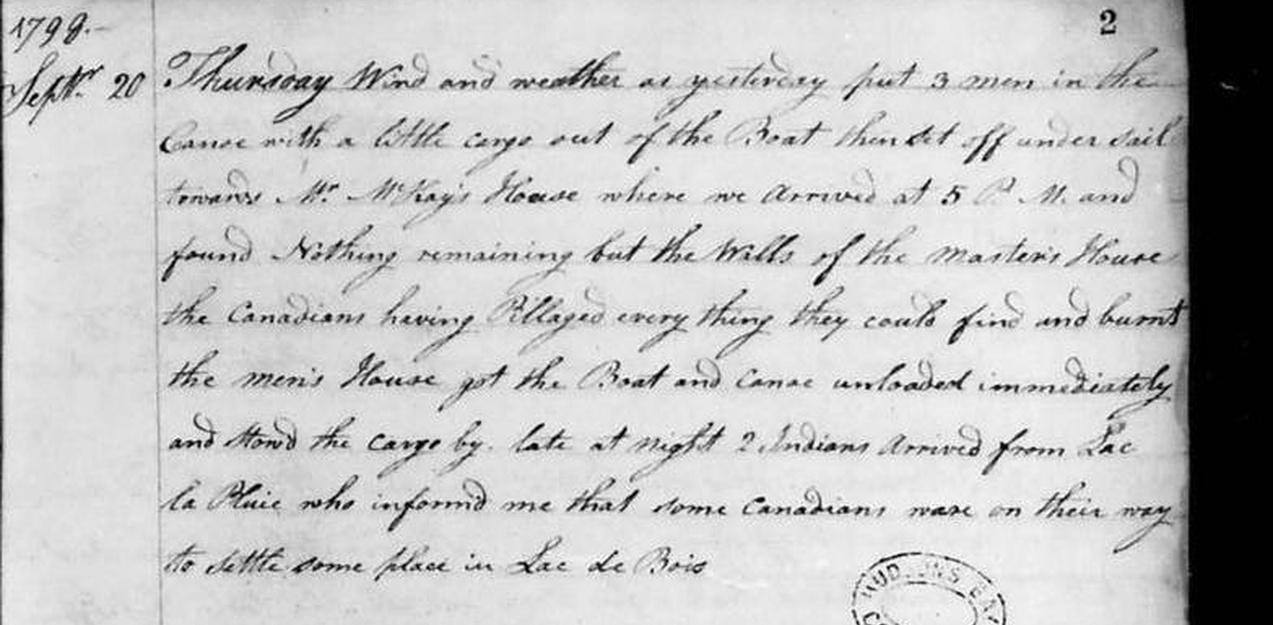 2
1798.
Septr. 20 Thursday Wind and weather as yesterday put 3 men in the
Canoe with a little cargo out of the Boat then set off under sail
towards Mr. McKay's House where we Arrived at 5 P. M. and
found Nothing remaining but the Walls of the Master's House
the Canadians having Pillaged every thing they could find and burnt
the men's House got the Boat and Canoe unloaded immediately
and stow'd the cargo by. late at night 2 Indians Arrived from Lac
la Pluie who inform'd me that some Canadians ware on their way
to settle some place in Lac de Bois
HUDSONS BAY